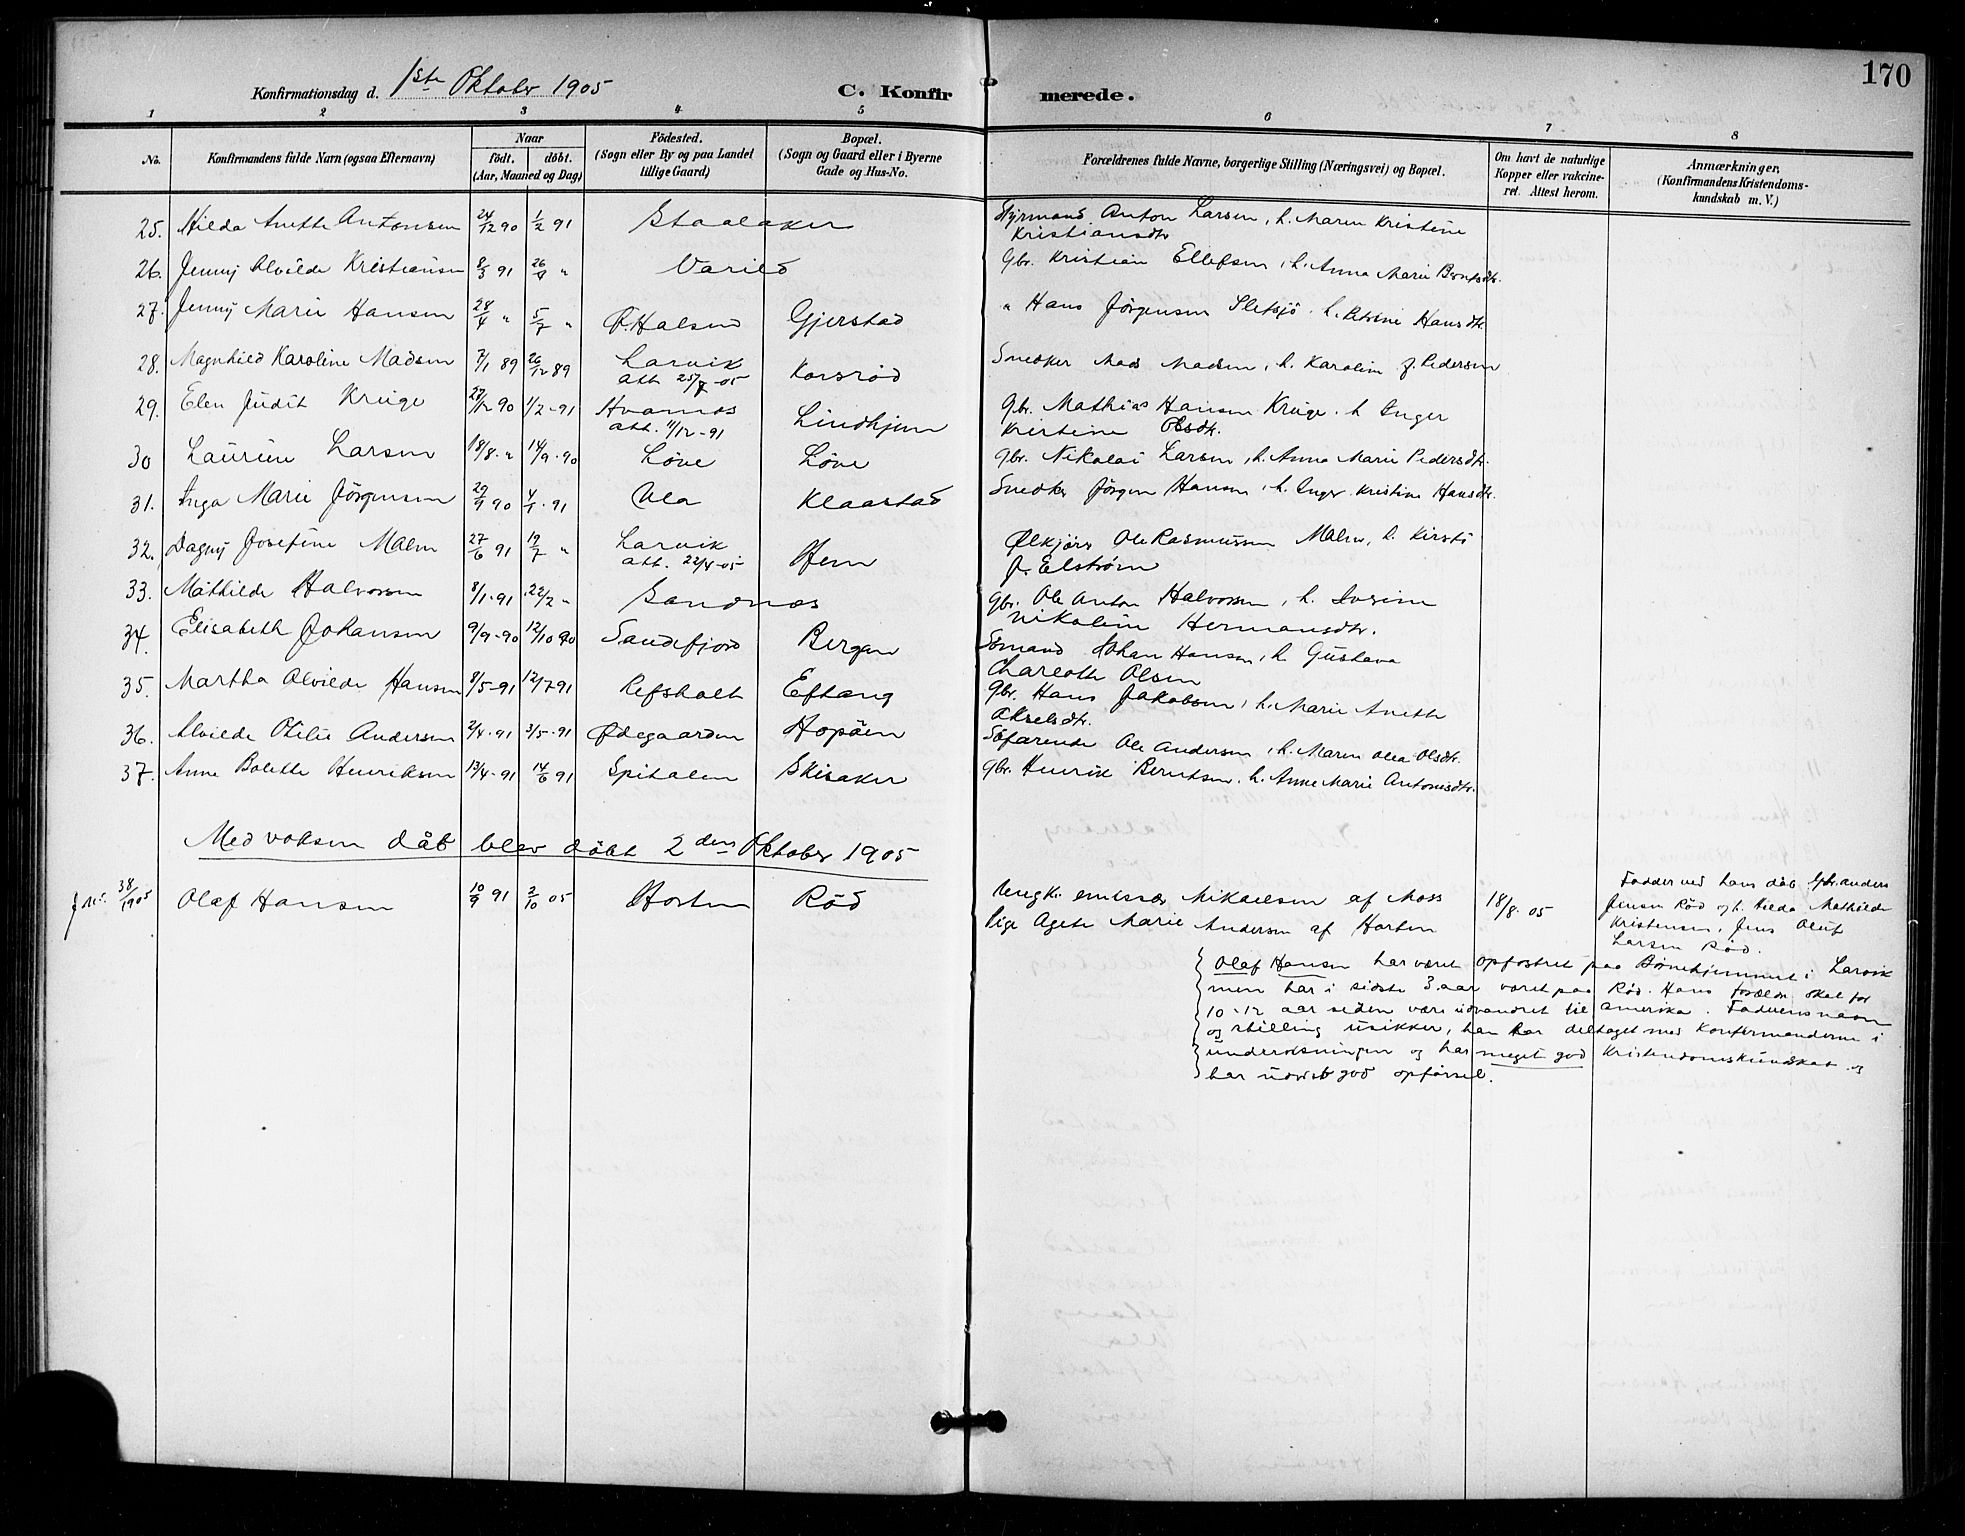 170
Konfirmationsdag d. 1ste Oktober 1905
C. Konfirmerede.
1 2 3 4 5 6 7 8
No.
Konfirmandens fulde Navn (ogsaa Efternavn)
Naar
födt. döbt.
(Aar, Maaned og Dag)
Födested.
(Sogn eller By og paa Landet
tillige Gaard)
Bopæl.
(Sogn og Gaard eller i Byerne
Gade og Hus-No.
Forældrenes fulde Navne, borgerlige Stilling (Næringsvei) og Bopæl.
Om havt de naturlige
Kopper eller vakcine-
ret. Attest herom.
Anmærkninger,
(Konfirmandens Kristendoms-
kundskab m. V.)
25. Hilda Anette Antonsen 24/12 90 1/2 91 Staalaker Styrmand Anton Larsen, h. Maren Kristine
Kristiansdtr
26. Jenny Alvilde Kristiansen 8/3 91 26/4 " Varild Gbr. Kristian Ellefsen, h. Anna Marie Berntsdtr.
27. Jenny Marie Hansen 28/4 " 5/7 " Ø. Halsen Gjerstad " Hans Jörgensen Sletsjö. h. Petrine Hansdtr
28. Magnhild Karoline Madsen 7/1 89 26/12 89 Larvik Korsröd Snedker Mads Madsen, h. Karoline f. Pedersen
att. 25/7-05
29. Elen Judit Krüge 27/12 90 1/2-91 Hvarnes Lindhjem Gbr. Mathias Hansen Krüge. h Inger
att. 11/12-91 Kristine Olsdtr.
30 Laurine Larsen 18/8-" 14/9-90 Löve Löve Gbr. Nikolai Larsen, h. Anna Marie Pedersdtr.
31. Inga Marie Jörgensen 29/9 90 4/1-91 Ula Klaastad Snedker Jörgen Hansen, h. Inger Kristine Hansdtr.
32. Dagny Josefine Malm 27/6 91 19/7 " Larvik Hem Ölkjörer Ole Rasmussen Malm, h. Kirsti
att. 22/4-05 f. Elström
33. Mathilde Halvorsen 8/1-91 22/2 " Sandnæs Gbr. Ole Anton Halvorsen, h.
Nikoline Hermansdtr.
34. Elisabeth Johansen 9/9-90 12/10 90 Sandefjord Bergan Sömand Johan Hansen, h. Gustava
Charlotte Olsen
35. Martha Alvilde Hansen 8/5-91 12/7 91 Refsholt Eftang Gbr. Hans Jakobsen, h. Marie Anette
Akselsdtr.
36. Alvilde Otilie Andersen 2/4-91 3/5-91 Ødegaarden Hopöen Söfarende Ole Andersen, h. Maren Olea Olsdtr.
37. Anne Bolette Henriksen 13/4-91 14/6 91 Spitalen Skisaker Gbr. Henrik Berntsen. h. Anne Marie Antonisdtr.
Med voksen dåb blev döbt 2den Oktober 1905
38/1905 Olaf Hansen 10/9 91 2/10 05 Horten Röd emissær Mikaelsen af Moss 18/8. 05
Pige Agete Marie Andersen af Horten
Fadder ved hans dåb Gbr. Anders
Jensen Röd og h. Hilda Mathilde
Kristensen, Jens Oluf
Larsen Röd.
Olaf Hansen har været opfostret paa Börnehjemmet i Larvik
men har i sidste 3 aar været paa Röd. Hans forældre skal for
10-12 aar siden være udvandret til Amerika. Faderens navn
og stilling usikker, han har deltaget med Konfirmanderne i
undervisningen og har meget god Kristendomskundskab og
har udvist god opförsel.